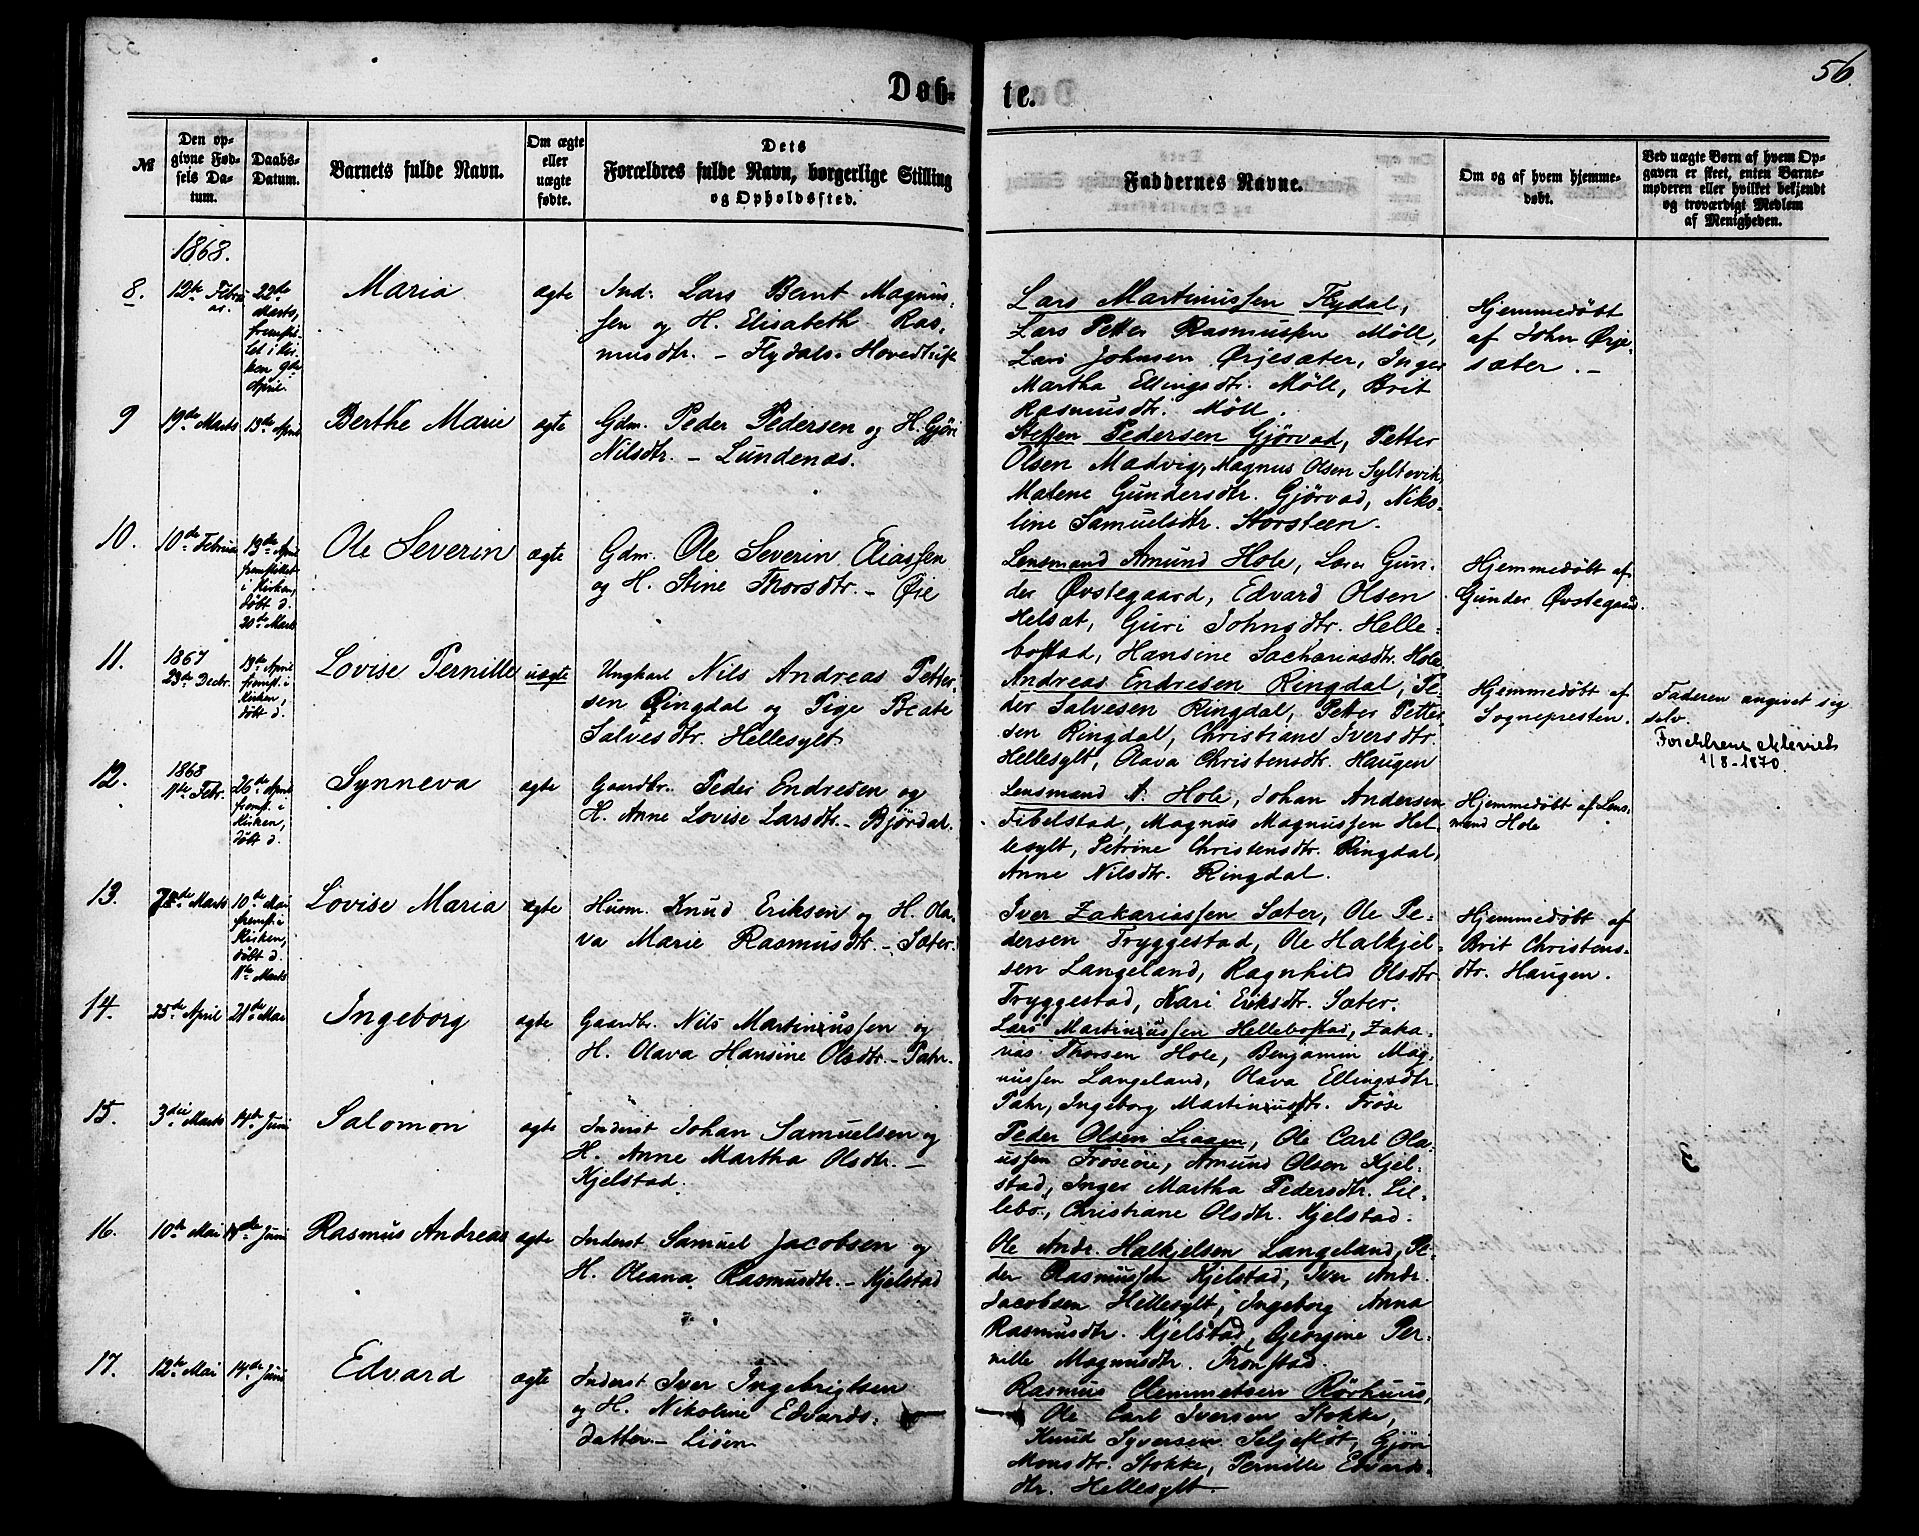 56.
Døb-
te.
№
Den op-
givne Fød-
sels Da-
tum.
Daabs-
Datum.
Barnets fulde Navn.
Om ægte
eller
uægte
fødte.
Dets
Forældres fulde Navn, borgerlige Stilling
og Opholdssted.
Faddernes Navne.
Om og af hvem hjemme-
døbt.
Ved uægte Børn af hvem Op-
gaven er skeet, enten Barne-
moderen eller hvilket bekjendt
og troværdigt Medlem
af Menigheden.
1868.
8.
12te Febru
ar.
22de
Marts,
fremstil-
let i Kir-
ken 9de
April.
Maria
ægte
Ind. Lars Bernt Magnus-
sen og H. Elisabeth Ras-
musdtr. – Flydals Hovedtuft
Lars Martinussen Flydal,
Lars Petter Rasmussen Möll,
Lars Johnsen Ørjesæter, Inger
Martha Ellingsdtr. Möll, Brit
Rasmusdtr. Möll.
Hjemmedøbt
af John Ørje-
sæter. –
9
19de Marts
13de April
Berthe Marie
ægte
Gdm. Peder Pedersen og H. Gjöri
Nilsdtr. – Lundenæs.
Steffen Pedersen Gjörvad, Petter
Olsen Madvig, Magnus Olsen Syltevik,
Malene Gundersdtr. Gjörvad, Niko-
line Samuelsdtr. Korsteen.
10.
10de Februar
19de April
fremstillet
i Kirken,
døbt d.
20de Marts
Ole Severin
ægte
Gdm. Ole Severin Eliassen
og H. Stine Thorsdtr. – Øie
Lensmand Amund Hole, Lars Gun-
der Øvstegaard, Edvard Olsen
Helsæt, Guri Johnsdtr. Helle-
bostad, Hansine Sachariasdtr. Hole
Hjemmedøbt af
Gunder Øvstegaard.
11.
1867
23de Decbr.
19de April
fremst. i
Kirken,
døbt d.
Lovise Pernille
uægte
Ungkarl Nils Andreas Petter-
sen Ringdal og Pige Beate
Salvesdtr. Hellesylt
Andreas Endresen Ringdal, Pe-
der Salvesen Ringdal, Petter Petter-
sen Ringdal, Christiane Iversdtr.
Hellesylt, Olava Christensdtr. Haugen
Hjemmedøbt af
Sognepresten.
Faderen angivet sig
selv.
Forældrene ægteviet
1/8-1870.
12.
1868
1ste Febr.
26de April
fremst. i
Kirken,
døbt d.
Synneva
ægte
Gaardbr. Peder Endresen og
H. Anne Lovise Larsdtr. – Björdal.
Lensmand A. Hole, Johan Andersen
Fibelstad, Magnus Magnussen Hel-
lesylt, Petrine Christensdtr. Ringdal,
Anne Nilsdtr. Ringdal.
Hjemmedøbt af Lens-
mand Hole
13.
Marts
10de Mai
fremst. i
Kirken,
døbt d.
11te Marts
Lovise Maria
ægte
Husm. Knud Eriksen og H. Ola-
va Marie Rasmusdtr. – Sæter.
Iver Zakariassen Sæter, Ole Pe-
dersen Tryggestad, Ole Halkjel-
sen Langeland, Ragnhild Olsdtr.
Tryggestad, Kari Eriksdtr. Sæter.
Hjemmedøbt af
Brit Christens-
dtr. Haugen.
14.
25de April
21de Mai
Ingeborg
ægte
Gaardbr. Nils Martinussen og
H. Olava Hansine Olsdtr. – Tahr.
Lars Martinussen Hellebostad, Zaka-
rias Thorsen Hole, Benjamin Mag-
nussen Langeland, Olava Ellingsdtr.
Tahr, Ingeborg Martinusdtr. Fröse
15.
3die Marts
14de Juni
Salomon
ægte
Inderst Johan Samuelsen og
H. Anne Martha Olsdtr. –
Kjelstad.
Peder Olsen Liaaen, Ole Carl Ola-
ussen Frösöie, Amund Olsen Kjel-
stad, Inger Martha Pedersdtr. Lil-
lebø, Christiane Olsdtr. Kjelstad.
16.
10de Mai
14de Juni
Rasmus Andreas
ægte
Inderst Samuel Jacobsen og
H. Oleana Rasmusdtr. – Kjelstad
Ole Andr. Halkjelsen Langeland, Pe-
der Rasmussen Kjelstad, Iver Andr.
Jacobsen Hellesylt, Ingeborg Anna
Rasmusdtr. Kjelstad, Georgine Per-
nille Magnusdtr. Tronstad.
17.
12te Mai
14de Juni
Edvard
ægte
Inderst Iver Ingebrigtsen
og H. Nikoline Edvards-
datter – Lisen
Rasmus Clemmetsen Rörhuus,
Ole Carl Iversen Stokke,
Knud Syversen Seljeflot, Gjöri
Monsdtr. Stokke, Pernille Edvards-
dtr. Hellesylt.